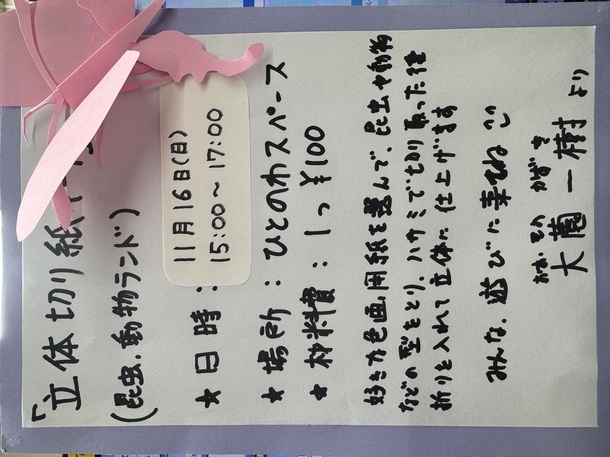 「立体切り紙
(昆虫、動物ランド)
★日時:11月16日(日)
15:00〜17:00
★場所:ひとのわスペース
★材料費:1つ¥100
好きな色画用紙を選んで、昆虫や動物
などの型をとり、ハサミで切り取った後
折りを入れて立体に仕上げます
みんな、遊びに来てね
かずき
大薗 一樹 より